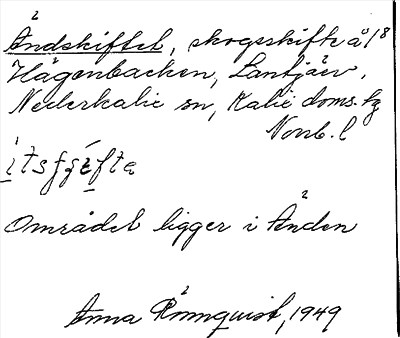 Åndskiftet, skogsskifte å 1/8
Hägenbacken, Lantjärv,
Nederkalix sn, Kalix doms. tg
Norrb. l
Området ligger i Ånden
Anna Rönnquist, 1949